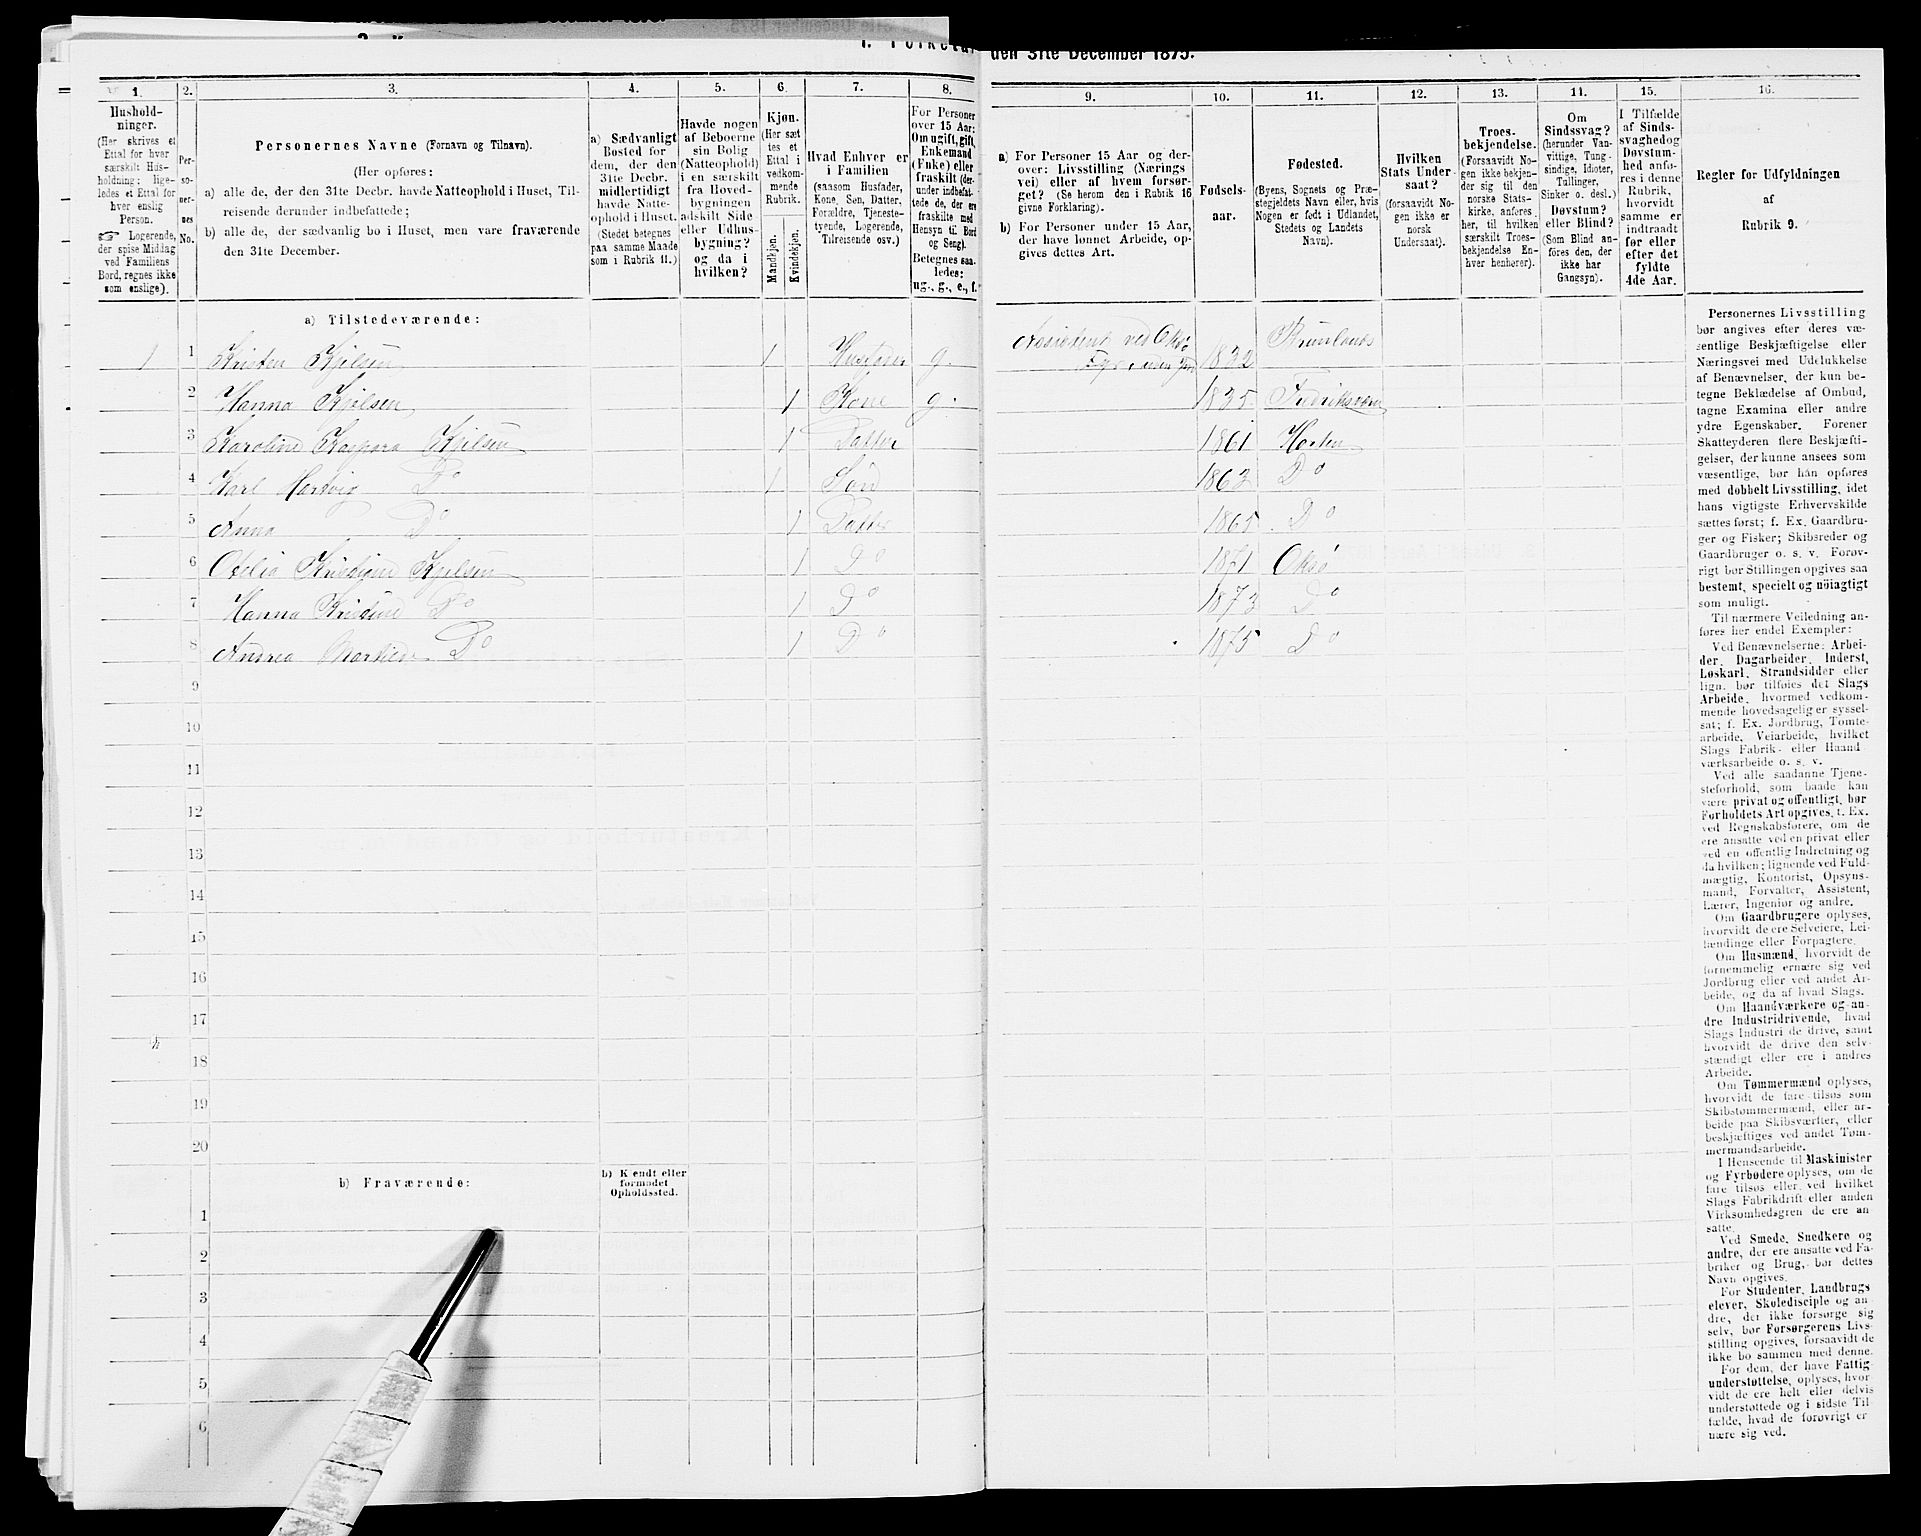 den 31te December 1875.
1.
2.
3.
4.
5.
6.
7.
8.
9.
10.
11.
12.
13.
11.
15.
16.
Hushold-
ninger.
(Her skrives et
Ettal for hver
særskilt Hus-
holdning; lige-
ledes et Ettal for
hver enslig
Person.
Logerende,
der spise Middag
ved Familiens
Bord, regnes ikke
som enslige).
Per-
so-
ner-
nes
No.
Personernes Navne (Fornavn og Tilnavn).
(Her opføres:
a) alle de, der den 31te Decbr. havde Natteophold i Huset, Til-
reisende derunder indbefattede;
b) alle de, der sædvanlig bo i Huset, men vare fraværende
den 31te December.
a) Sædvanligt
Bosted for
dem, der den
31te Decbr.
midlertidigt
havde Natte-
ophold i Huset.
(Stedet betegnes
paa samme Maade
som i Rubrik 11.)
Havde nogen
af Beboerne
sin Bolig
(Natteophold)
i en særskilt
fra Hoved-
bygningen
adskilt Side
eller Udhus-
bygning?
og da i
hvilken?
Kjøn.
(Her sæt
tes et
Ettal i
vedkom-
mende
Rubrik.
Mandkjøn.
Kvindekjøn.
Hvad Enhver er
i Familien
(saasom Husfader,
Kone, Søn, Datter,
Forældre, Tjeneste-
tyende, Logerende,
Tilreisende osv.)
For Personer
over 15 Aar:
Om ugift, gift,
Enkemand
(Enke) eller
fraskilt (der-
under indbefat-
tede de, der ere
fraskilte med
Hensyn til Bord
og Seng).
Betegnes saa-
ledes:
ug., g., e., f.
a) For Personer 15 Aar og der-
over: Livsstilling (Nærings
vei) eller af hvem forsør-
get? (Se herom den i Rubrik 16
givne Forklaring).
b) For Personer under 15 Aar,
der have lønnet Arbeide, op-
gives dettes Art.
Fødsels-
aar.
Fødested.
(Byens, Sognets og Præ-
stegjeldets Navn eller, hvis
Nogen er født i Udlandet,
Stedets og Landets
Navn).
Hvilken
Stats Under
saat?
(forsaavidt No-
gen ikke er
norsk
Undersaat).
Troes-
bekjendelse.
(Forsaavidt No-
gen ikke bekjen-
der sig til den
norske Stats-
kirke, anføres
her, til hvilken
særskilt Troes-
bekjendelse En-
hver henhører).
Om
Sindssvag?
(herunder Van-
vittige, Tung-
sindige, Idioter,
Tullinger,
Sinker o. desl.)
Døvstum?
eller Blind?
(Som Blind an-
føres den, der
ikke har
Gangsyn).
I Tilfælde
af Sinds-
svaghed og
Døvstum-
hed anfø-
res i denne
Rubrik,
hvorvidt
samme er
indtraadt
før eller
efter det
fyldte
4de Aar.
Regler for Udfyldningen
af
Rubrik 9.
a) Tilstedeværende:
1 1 Kristen Kjelsen 1 Husfader g. Assistent ved Oksø 1832
2 Hanna Kjelsen 1 Kone g. 1835 Fredriksværn
3 Karoline Kaspara Kjelsen 1 Datter 1861 Horten
4 Karl Hartvig Do 1 Søn 1863 Do
5 Anna Do 1 Datter 1865 Do
6 Otelia Kristiane Kjelsen 1 Do 1871 Oksø
7 Hanna Kristine Do 1 Do 1873 Do
8 Andrea Do 1 Do 1875 Do
9
10
11
12
13
14
15
16
17
18
19
20
b) Fraværende:
b) Kjendt eller
formodet
Opholdssted.
1
2
3
4
5
6
Personernes Livsstilling
bør angives efter deres væ-
sentlige Beskjæftigelse eller
Næringsvei med Udelukkelse
af Benævnelser, der kun be-
tegne Beklædelse af Ombud,
tagne Examina eller andre
ydre Egenskaber. Forener
Skatteyderen flere Beskjæfti-
gelser, der kunne ansees som
væsentlige, bør han opføres
med dobbelt Livsstilling, idet
hans vigtigste Erhvervskilde
sættes først; f. Ex. Gaardbru-
ger og Fisker; Skibsreder og
Gaardbruger o. s. v. Forøv-
rigt bør Stillingen opgives saa
bestemt, specielt og nöiagtigt
som muligt.
Til nærmere Veiledning an-
føres her endel Exempler:
Ved Benævnelserne: Arbei-
der, Dagarbeider, Inderst,
Løskarl, Strandsidder eller
lign. bør tilføies det Slags
Arbeide, hvormed vedkom-
mende hovedsagelig er syssel-
sat; f. Ex. Jordbrug, Tomte-
arbeide, Veiarbeide, hvilket
Slags Fabrik- eller Haand
værksarbeide o. s. v.
Ved alle saadanne Tjene-
steforhold, som baade kan
være privat og offentligt, bør
Forholdets Art opgives, t. Ex.
ved Regnskabsførere, om de
ere ansatte ved en privat eller
ved en offentlig Indretning og
da hvilken; lignende ved Fuld-
mægtig, Kontorist, Opsyns-
mand, Forvalter, Assistent,
Lærer, Ingeniør og andre.
Om Gaardbrugere oplyses,
hvorvidt de ere Selveiere, Lei-
lændinge eller Forpagtere.
Om Husmænd, hvorvidt de
fornemmelig ernære sig ved
Jordbrug eller ved andet Ar-
beide, og da af hvad Slags.
Om Haandværkere og an-
dre Industridrivende, hvad
Slags Industri de drive, samt
hvorvidt de drive den selv-
stændigt eller ere i andres
Arbeide.
Om Tømmermænd oplyses,
hvorvidt de fare tilsøs som
Skibstømmermænd, eller ar-
beide paa Skibsværfter, eller
beskjæftiges ved andet Tøm-
mermandsarbeide.
I Henseende til Maskinister
og Fyrbødere oplyses, om de
fare tilsøs eller ved hvilket
Slags Fabrikdrift eller anden
Virksomhedsgren de ere an
satte.
Ved Smede, Snedkere og
andre, der ere ansatte ved Fa-
briker og Brug, bør dettes
Navn opgives.
For Studenter, Landbrugs
elever, Skoledisciple og an-
dre, der ikke forsørge sig
selv, bør Forsørgerens Livs-
stilling opgives, forsaavidt de
ikke bo sammen med denne.
For dem, der have Fattig-
understøttelse, oplyses, hvor-
vidt de ere helt eller delvis
understøttede og i sidste Til-
fælde, hvad de forøvrigt er
nære sig ved.